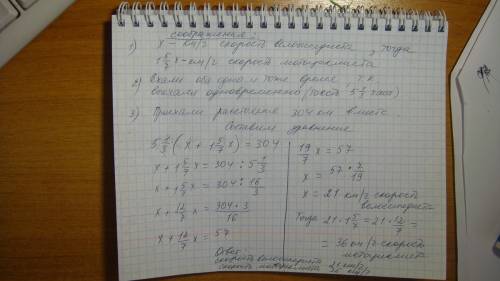 соображения:
1) x - км/ч скорость велосипедиста, тогда
1 5/7 x - км/ч скорость мотоциклиста
2) Ехали оба одно и тоже время, т.к.
выехали одновременно (то есть 5 1/3 часа)
3) Проехали расстояние 304 км вместе
Составим уравнение
5 1/3 (x + 1 5/7 x) = 304
x + 1 5/7 x = 304 : 5 1/3
x + 1 5/7 x = 304 : 16/3
x + 12/7 x = 304 · 3 / 16
x + 12/7 x = 57
19/7 x = 57
x = 57 · 7 / 19
x = 21 км/ч скорость
велосипедиста
Тогда 21 · 1 5/7 = 21 · 12/7 =
= 36 км/ч скорость
мотоциклиста
Ответ:
скорость велосипедиста 21 км/ч
скорость мотоциклиста 36 км/ч